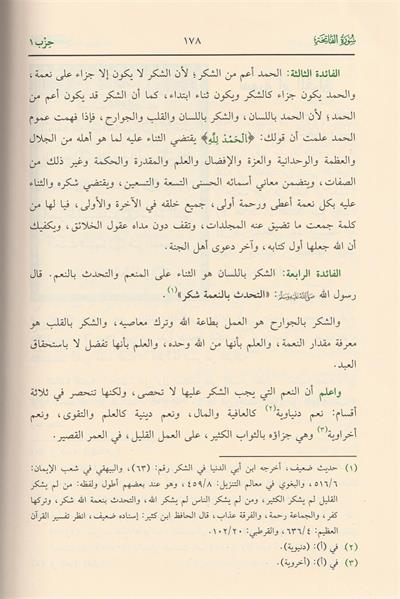 سُورَةُ الفَاتِحَة
١٧٨
حِزْب ١
الفائدة الثالثة: الحمد أعم من الشكر؛ لأن الشكر لا يكون إلا جزاء على نعمة،
والحمد يكون جزاء كالشكر ويكون ثناء ابتداء، كما أن الشكر قد يكون أعم من
الحمد؛ لأن الحمد باللسان، والشكر باللسان والقلب والجوارح، فإذا فهمت عموم
الحمد علمت أن قولك: ﴿الْحَمْدُ لِلَّهِ﴾ يقتضي الثناء عليه لما هو أهله من الجلال
والعظمة والوحدانية والعزة والإفضال والعلم والمقدرة والحكمة وغير ذلك من
الصفات، ويتضمن معاني أسمائه الحسنى التسعة والتسعين، ويقتضي شكره والثناء
عليه بكل نعمة أعطى ورحمة أولى، جميع خلقه في الآخرة والأولى، فيا لها من
كلمة جمعت ما تضيق عنه المجلدات، وتقف دون مداه عقول الخلائق، ويكفيك
أن الله جعلها أول كتابه، وآخر دعوى أهل الجنة.
الفائدة الرابعة: الشكر باللسان هو الثناء على المنعم والتحدث بالنعم. قال
رسول الله ﷺ: «التحدث بالنعمة شكر»(١).
والشكر بالجوارح هو العمل بطاعة الله وترك معاصيه، والشكر بالقلب هو
معرفة مقدار النعمة، والعلم بأنها من الله وحده، والعلم بأنها تفضل لا باستحقاق
العبد.
واعلم أن النعم التي يجب الشكر عليها لا تحصى، ولكنها تنحصر في ثلاثة
أقسام: نعم دنياوية(٢) كالعافية والمال، ونعم دينية كالعلم والتقوى، ونعم
أخراوية(٣) وهي جزاؤه بالثواب الكثير، على العمل القليل، في العمر القصير.
(١) حديث ضعيف، أخرجه ابن أبي الدنيا في الشكر رقم: (٦٣)، والبيهقي في شعب الإيمان:
٥١٦/٦، والبغوي في معالم التنزيل: ٤٥٩/٨، وهو عند بعضهم أطول ولفظه: من لم يشكر
القليل لم يشكر الكثير، ومن لم يشكر الناس لم يشكر الله، والتحدث بنعمة الله شكر، وتركها
كفر، والجماعة رحمة، والفرقة عذاب، قال الحافظ ابن كثير: إسناده ضعيف، انظر تفسير القرآن
العظيم: ٦٣٦/٤، والقرطبي: ١٠٢/٢٠.
(٢) في (أ): (دنيوية).
(٣) في (أ): (أخروية).